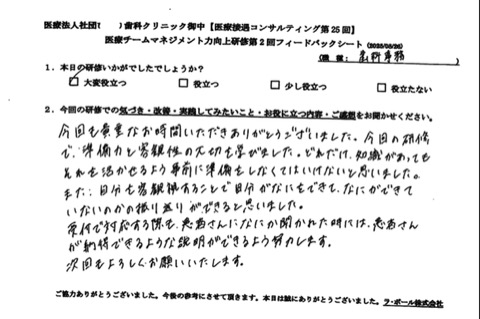 医療法人社団( )歯科クリニック御中【医療接遇コンサルティング第25回】
医療チームマネジメント力向上研修第2回フィードバックシート(2025/05/26)
(職種: 歯科事務)
1. 本日の研修いかがでしたでしょうか?
□ 大変役立つ □ 役立つ □ 少し役立つ □ 役立たない
2. 今回の研修での気づき・改善・実践してみたいこと・お役に立つ内容・ご感想をお聞かせください。
今回も貴重なお時間いただきありがとうございました。今日の研修
で、準備力と客観性の大切を学びました。どれだけ、知識があっても
それを活かせるよう事前に準備をしなくてはいけないと思いました。
また、自分を客観視することで自分がなにをできて、なにができて
いないのかの振り返りができると思いました。
受付で対応する際も、患者さんになにか聞かれた時には、患者さん
が納得できるような説明ができるよう努力します。
次回もよろしくお願いいたします。
ご協力ありがとうございました。今後の参考にさせて頂きます。本日は誠にありがとうございました。ラ・ポール株式会社